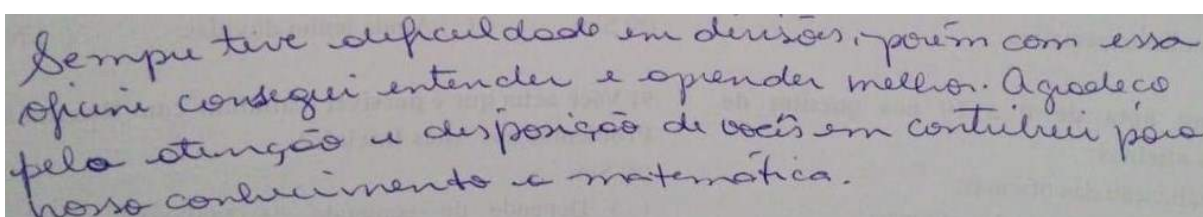 Sempre teve dificuldade em divisões, porém com essa
oficina consegui entender e aprender melhor. Agradeço
pela atenção e disposição de vocês em contribuir para
nosso conhecimento e matemática.